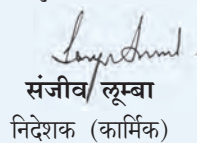 संजीव लूम्बा
निदेशक (कार्मिक)